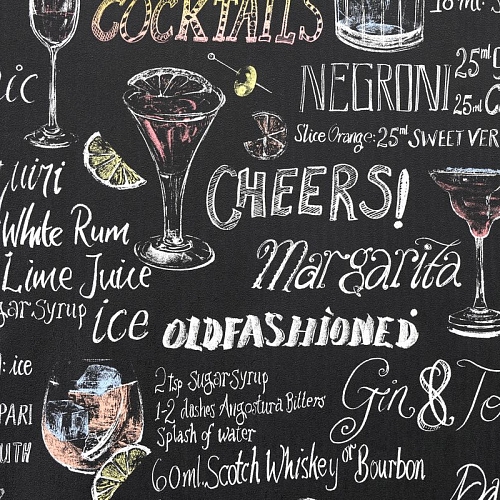 COCKTAILS
10 ml.
NEGRONI
25ml
25ml
Slice Orange: 25ml SWEET VER
CHEERS!
White Rum
Lime Juice
gar syrup ice
Margarita
OLDFASHIONED
: ice
PARI
UTH
2 tsp Sugar syrup
1-2 dashes Angostura Bitters
Splash of water
60ml. Scotch Whiskey or Bourbon
Gin & To